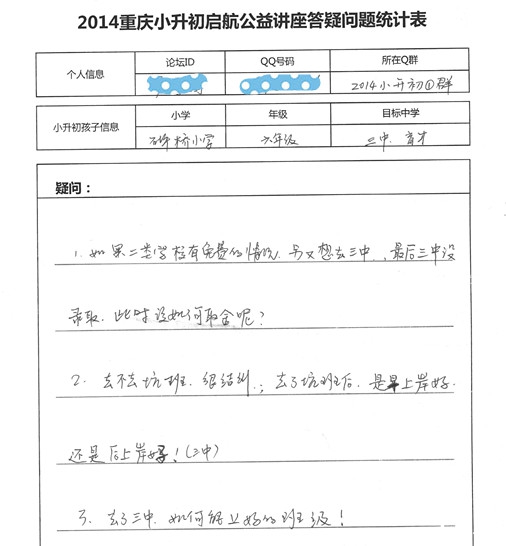 2014重庆小升初启航公益讲座答疑问题统计表
个人信息 论坛ID QQ号码 所在Q群
2014小升初①群
小升初孩子信息 小学 年级 目标中学
桥小学 六年级 三中、育才
疑问：
1. 如果二类学校有免费的情况, 另又想去三中, 最后三中没
录取, 此时该如何取舍呢?
2. 去不去坑班, 很结纠; 去了坑班后, 是早上岸好.
还是后上岸好! (三中)
3. 去了三中, 如何能上好的班级!